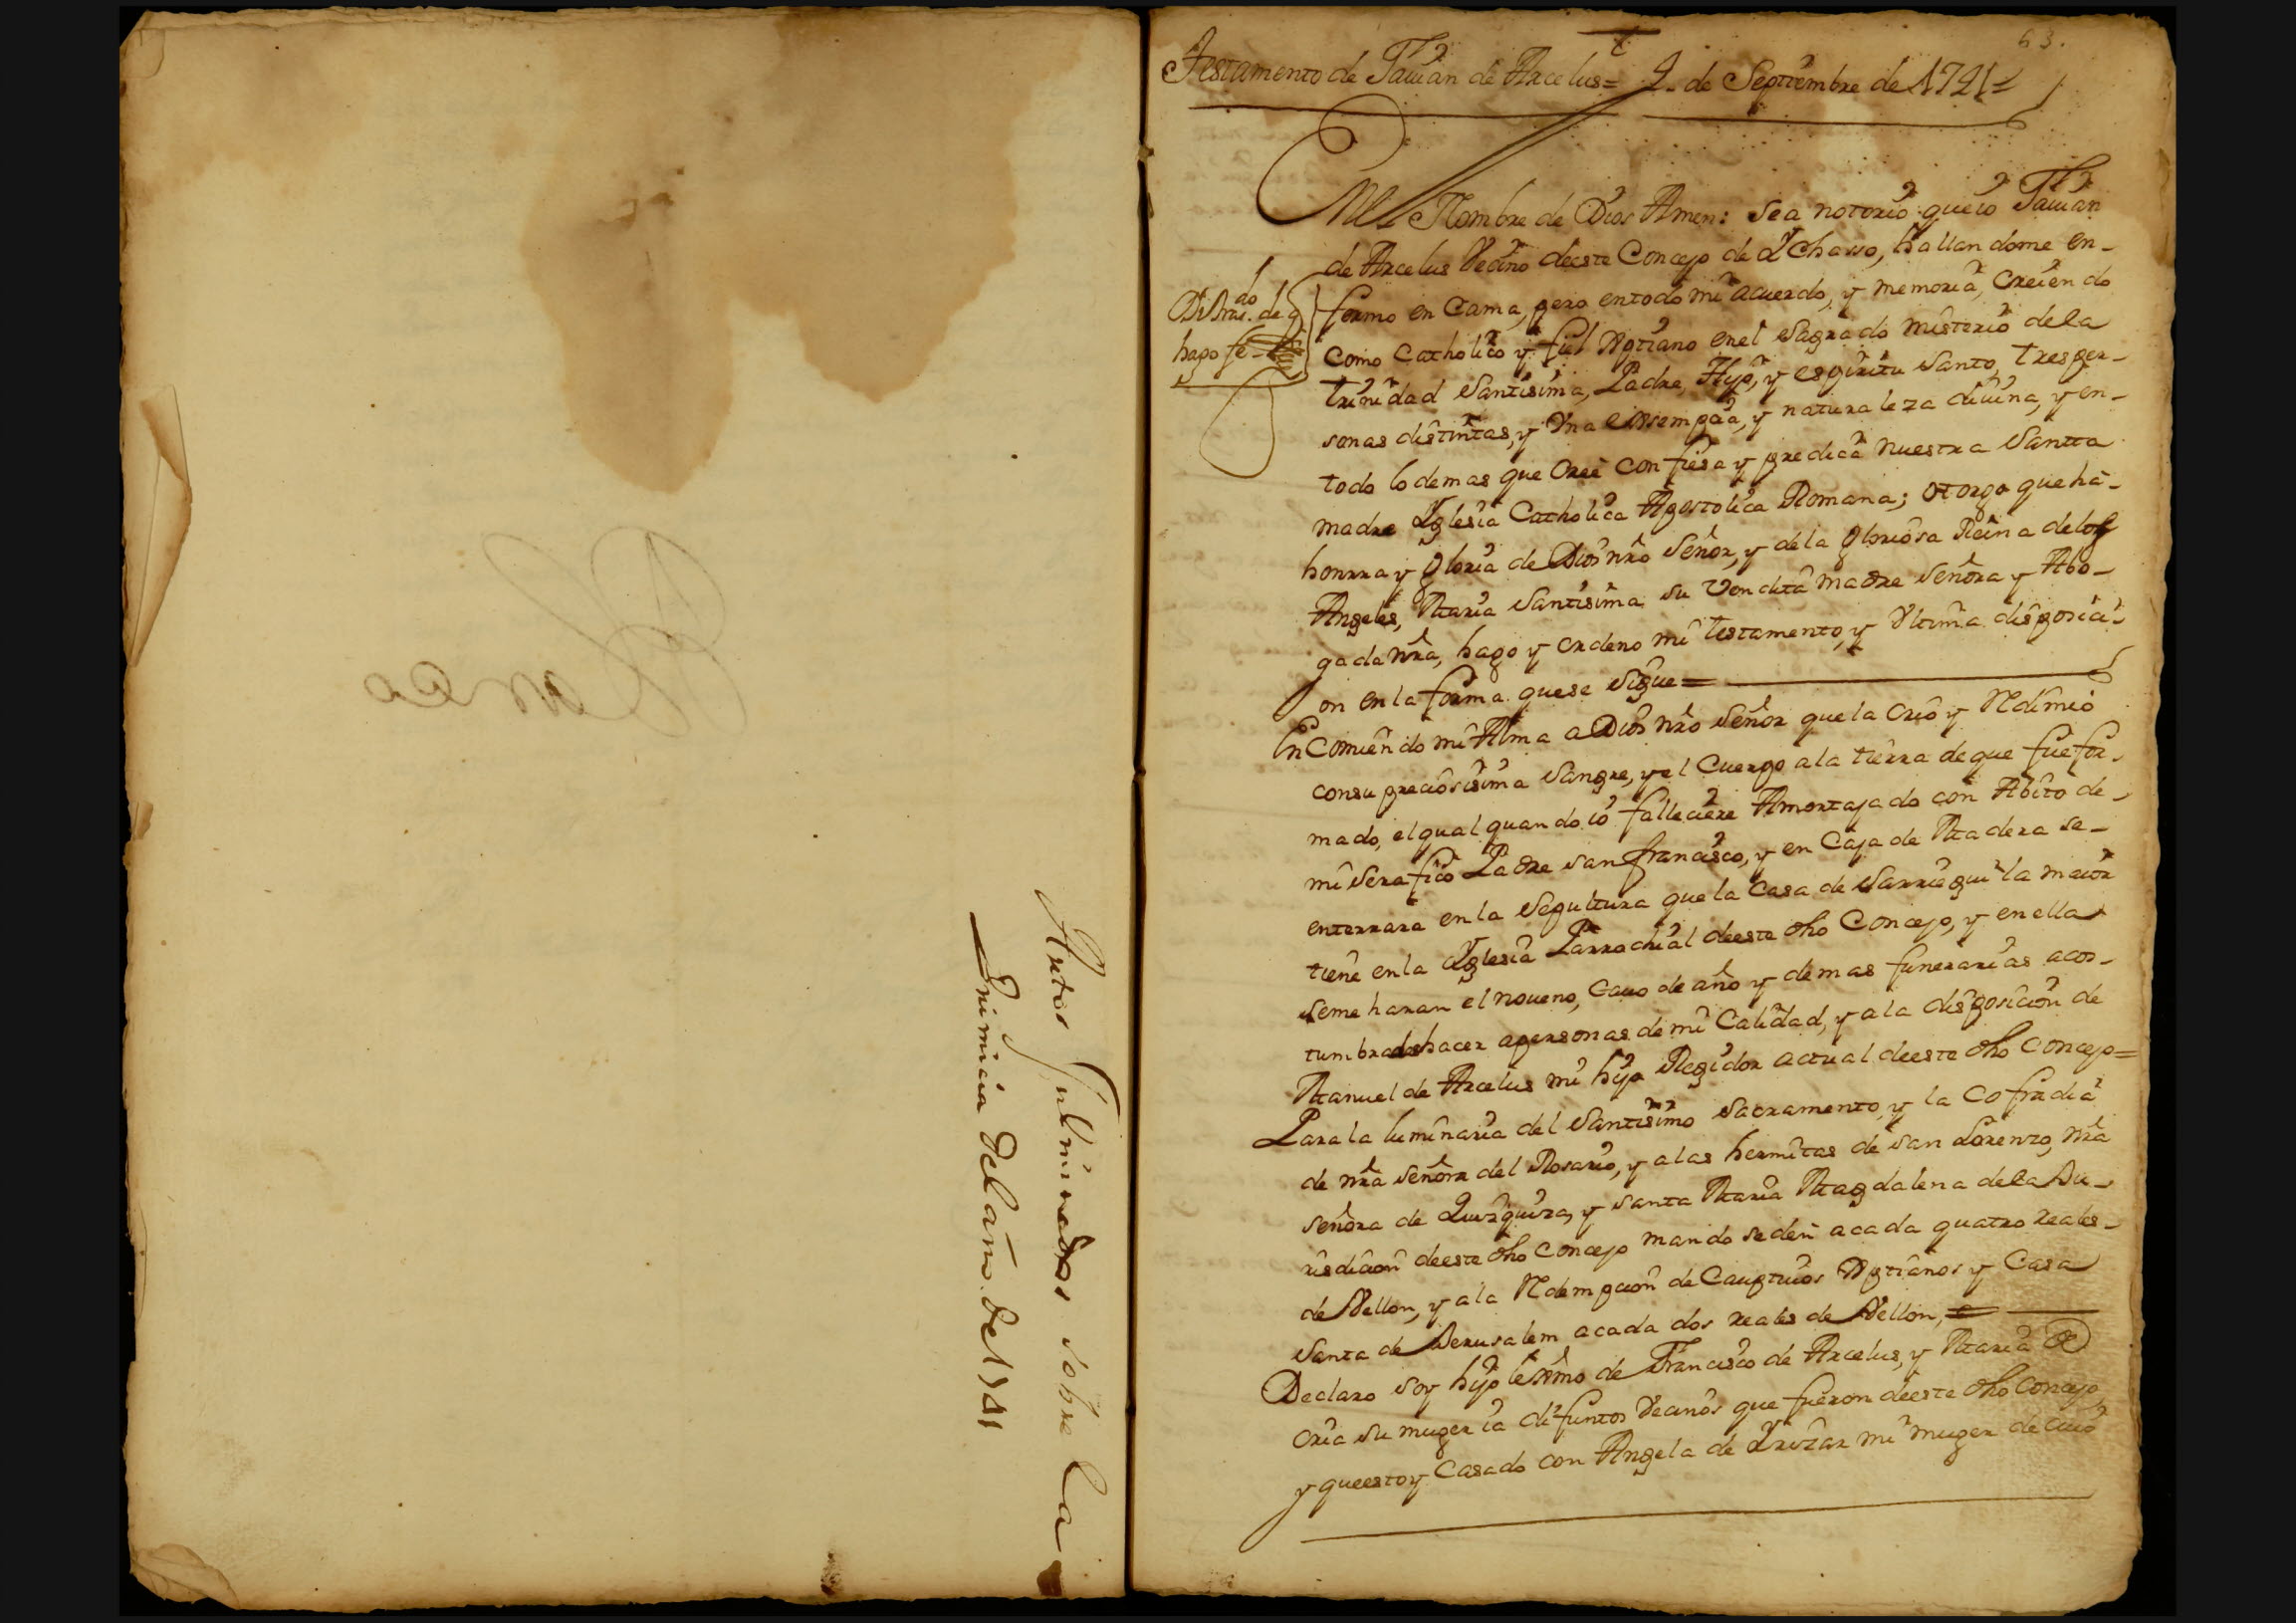 Autos fulminados sobre la
Primicia del año. de 1741
63.
Testamento de Fauian de Arcelus= 2. de Septiembre de 1721=
En el Nombre de Dios Amen: sea notorio que io Fauian
de Arcelus Vecino deeste Concejo de Ychasso, hallandome en-
fermo en Cama, pero entodo mi acuerdo, y memoria, creiendo
como Catholico y fiel Xptiano enel Sagrado misterio dela
trinidad Santisima, Padre, Hijo, y espiritu Santo, tresper-
sonas distintas, y Vna essempcia, y naturaleza diuina, y en-
todo lo demas que Cree confiesa y predica nuestra Santta
madre Yglesia Catholica Apostolica Romana; otorgo que hà-
honrra y gloria de Dios nro Señor, y dela gloriosa Reina delos
Angeles, Maria Santisima su Vendita madre Señora y Abo-
gada nra, hago y ordeno mi testamento, y Vltima disposici-
on en la forma que se sigue=
Encomiendo mi Alma a Dios nro Señor que la Crio y Redimio
consu preciosisima Sangre, y el Cuerpo ala tierra de que fue for-
mado, elqual quando io falleciere Amortajado con Abito de-
mi Serafico Padre san francisco, y en Caja de Madera se-
enterrara en la Sepultura que la Casa de Sarriegui la maior
tiene en la Yglesia Parrochial deeste dho Concejo, y en ella
seme haran el noueno, Cauo de año y demas funerarias acos-
tumbradas hacer apersonas de mi Calidad, y ala disposicion de
Manuel de Arcelus mi hijo Regidor actual deeste dho Concejo=
Para la luminaria del Santisimo Sacramento, y la Cofradia
de nra Señora del Rosario, y alas hermitas de san Lorenzo, nra
señora de Quizquiza, y santa Maria Magdalena dela Ju-
risdicion deeste dho Concejo mando se den acada quatro reales-
de Vellon, y ala Redempcion de Cauptiuos Xptianos y Casa
Santa de Jerusalem acada dos reales de Vellon,=
Declaro soy hijo lexmo de Francisco de Arcelus, y Maria de
oria su muger ia difuntos Vecinos que fueron deeste dho Concejo,
y queestoy Casado con Angela de Yrizar mi muger de cuio
hago fe-